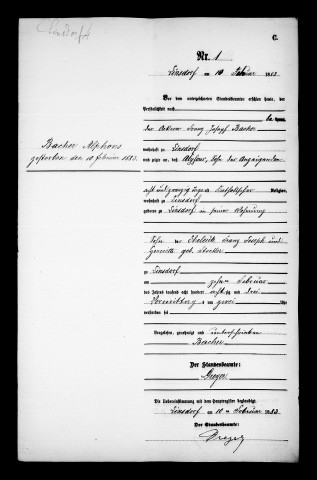 Linsdorf
C.
Nr. 1
Linsdorf am 10 Februar 1883.
Vor dem unterzeichneten Standesbeamten erschien heute, der
Persönlichkeit nach
kannt,
der Ackerer Franz Joseph Bacher
Bacher Alphons
gestorben den 10 Februar 1883.
wohnhaft zu Linsdorf
und zeigte an, daß Alphons, Sohn des Anzeigenden
acht und zwanzig Tage alt, katholischer Religion,
wohnhaft zu Linsdorf
geboren zu Linsdorf in seiner Wohnung
Sohn der Eheleute Franz Joseph und
geb.
zu Linsdorf
am zehnten Februar
des Jahres tausend acht hundert achtzig und drei
Vormittags um zwei Uhr
verstorben sei
Vorgelesen, genehmigt und unterschrieben
Bacher
Der Standesbeamte:
Die Uebereinstimmung mit dem Hauptregister beglaubigt.
Linsdorf am 10 Februar 1883.
Der Standesbeamte: